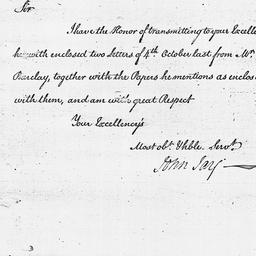 Sir
I have the Honor of transmitting to your Excelle
herewith enclosed two Letters of 4th October last from Mr.
Barclay, together with the Papers he mentions as enclos
with them, and am with great Respect
Your Excellency's
Most obt. & hble. Servt.
John Jay